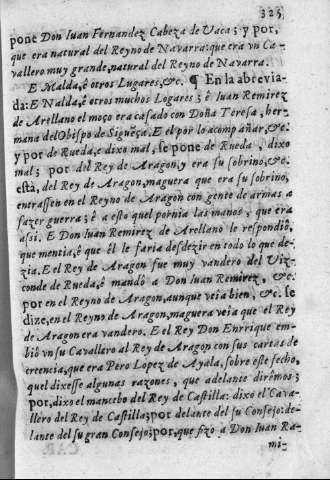 325
pone Don Iuan Fernandez Cabeza de Vaca; y por,
que era natural del Reyno de Navarra: que era vn Ca-
vallero muy grande, natural del Reyno de Navarra.
E Malda, é otros Lugares, &c. ¶ En la abrevia-
da: E Nalda, é otros muchos Logares; é Iuan Remirez
de Arellano el moço era casado con Doña Teresa, her-
mana del Obispo de Siguēça. E el por lo acompañar, &c.
y por de Rueda, e dixo mal, se pone de Rueda, dixo
mal; por del Rey de Aragon, y era su sobrino, &c.
està, del Rey de Aragon, maguera que era su sobrino,
entrassen en el Reyno de Aragon con gente de armas a
fazer guerra; é a esto quel pornia las manos, que era
assi. E Don Iuan Remirez de Arellano le respondiò,
que mentia, é que él le faria desdezir en todo lo que de-
zia. E el Rey de Aragon fue muy vandero del Viz-
conde de Rueda, é mandò a Don Iuan Remirez, &c.
por en el Reyno de Aragon, aunque veia bien, &c. se
dize, en el Reyno de Aragon, maguera veia que el Rey
de Aragon era vandero. E el Rey Don Enrrique em-
biò vn su Cavallero al Rey de Aragon con sus cartas de
creencia, que era Pero Lopez de Ayala, sobre este fecho,
quel dixesse algunas razones, que adelante dirêmos;
por, dixo el mancebo del Rey de Castilla: dixo el Cava-
llero del Rey de Castilla; por delante del su Consejo: de-
lante del su gran Consejo; por, que fizo a Don Iuan Ra-
mi-